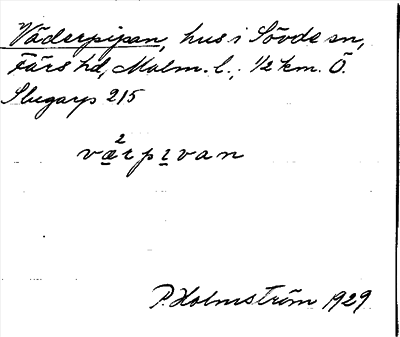 Väderpipan, hus i Sövde sn,
Färs hd, Malm. l.; 1/2 km. Ö.
Slugarp 2/5
2
værpɩvan
P. Holmström 1929